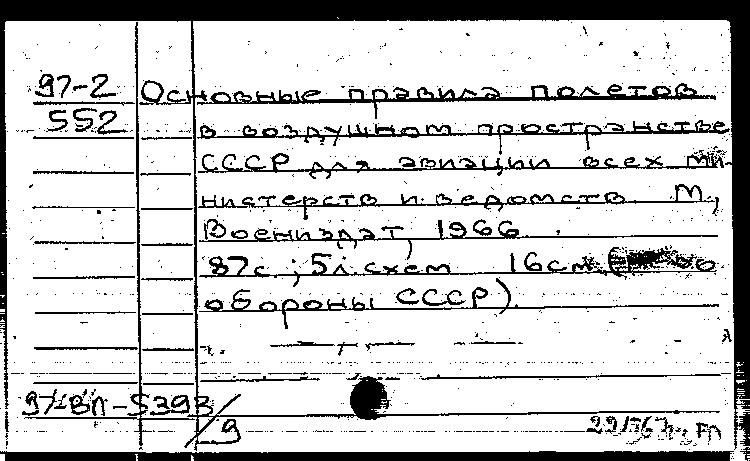 97-2 Основные правила полетов
552 в воздушном пространстве
СССР для авиации всех ми-
нистерств и ведомств М.,
Воениздат, 1966.
87с.; 5л. схем 16см (
обороны СССР)
97-ВЛ-5393/9